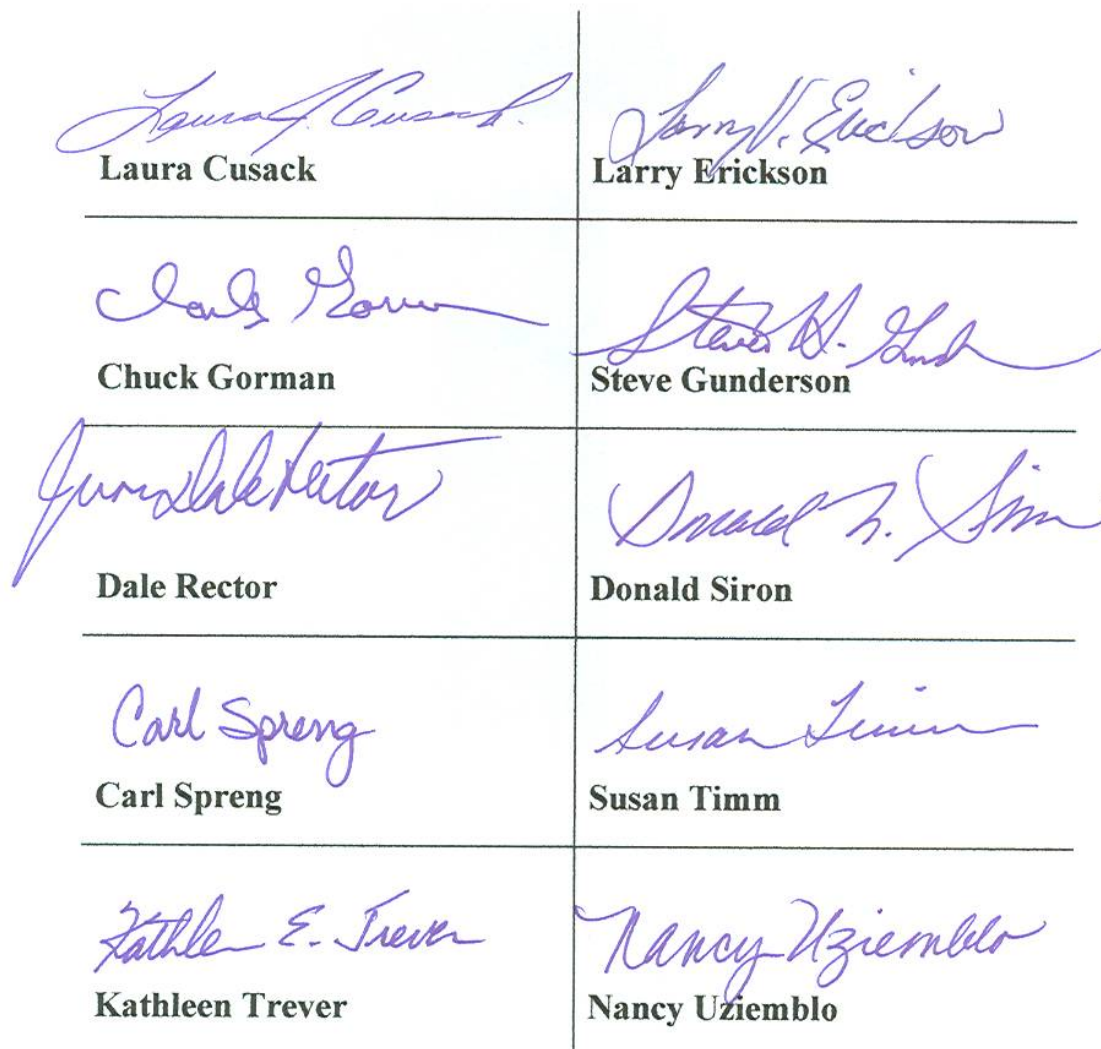 Laura J. Cusack
Laura Cusack
Larry V. Erickson
Larry Erickson
Charles Gorman
Chuck Gorman
Steven H.
Steve Gunderson
James Dale Rector
Dale Rector
Donald N. Siron
Donald Siron
Carl Spreng
Carl Spreng
Susan Timm
Susan Timm
Kathleen E. Trever
Kathleen Trever
Nancy Uziemblo
Nancy Uziemblo